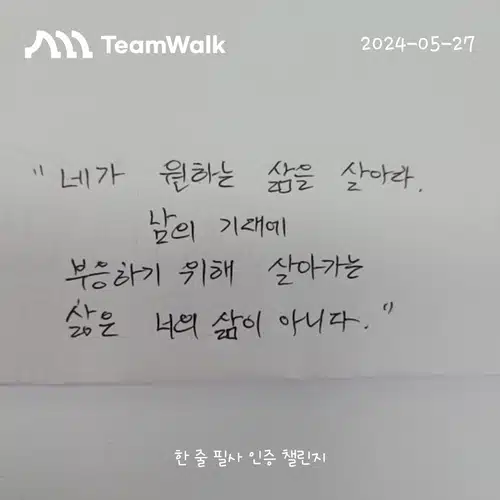 TeamWalk
2024-05-27
"네가 원하는 삶을 살아라.
남의 기대에
부응하기 위해 살아가는
삶은 너의 삶이 아니다."
한 줄 필사 인증 챌린지